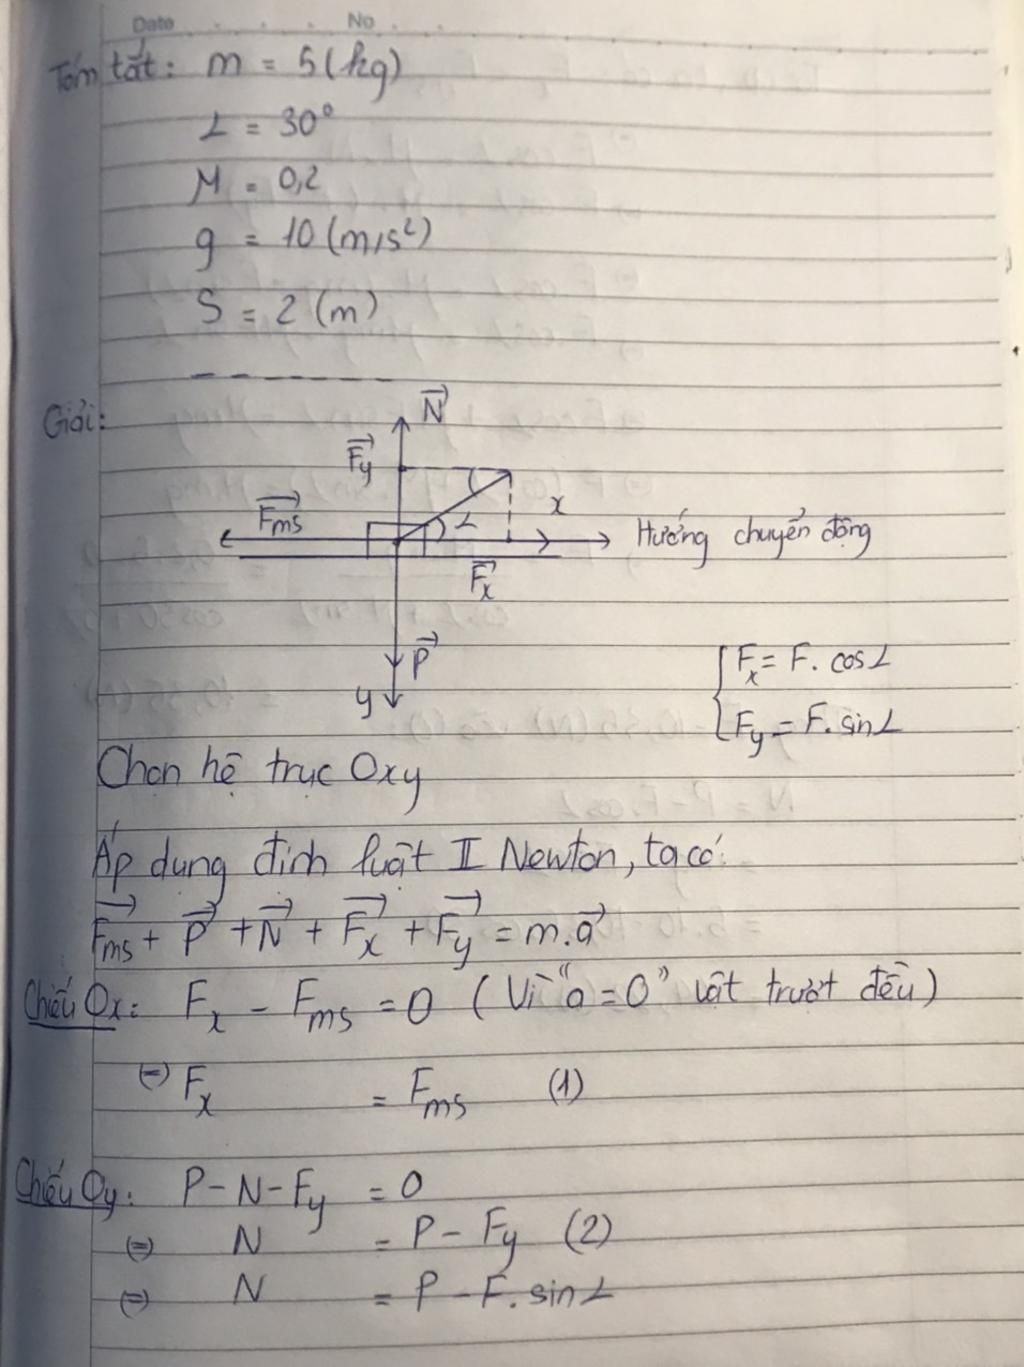 Date No
Tóm tắt: m = 5 (kg)
α = 30°
μ = 0,2
g = 10 (m/s²)
S = 2 (m)
Giải:
N
Fy
Fms
α
x
Hướng chuyển động
Fx
P
y
Fx = F. cosα
Fy = F. sinα
Chọn hệ trục Oxy
Áp dụng định luật II Newton, ta có:
Fms + P + N + Fx + Fy = m.a
Chiếu Ox: Fx - Fms = 0 (Vì "a = 0" vật trượt đều)
⇔ Fx = Fms (1)
Chiếu Oy: P - N - Fy = 0
⇔ N = P - Fy (2)
⇔ N = P - F. sinα